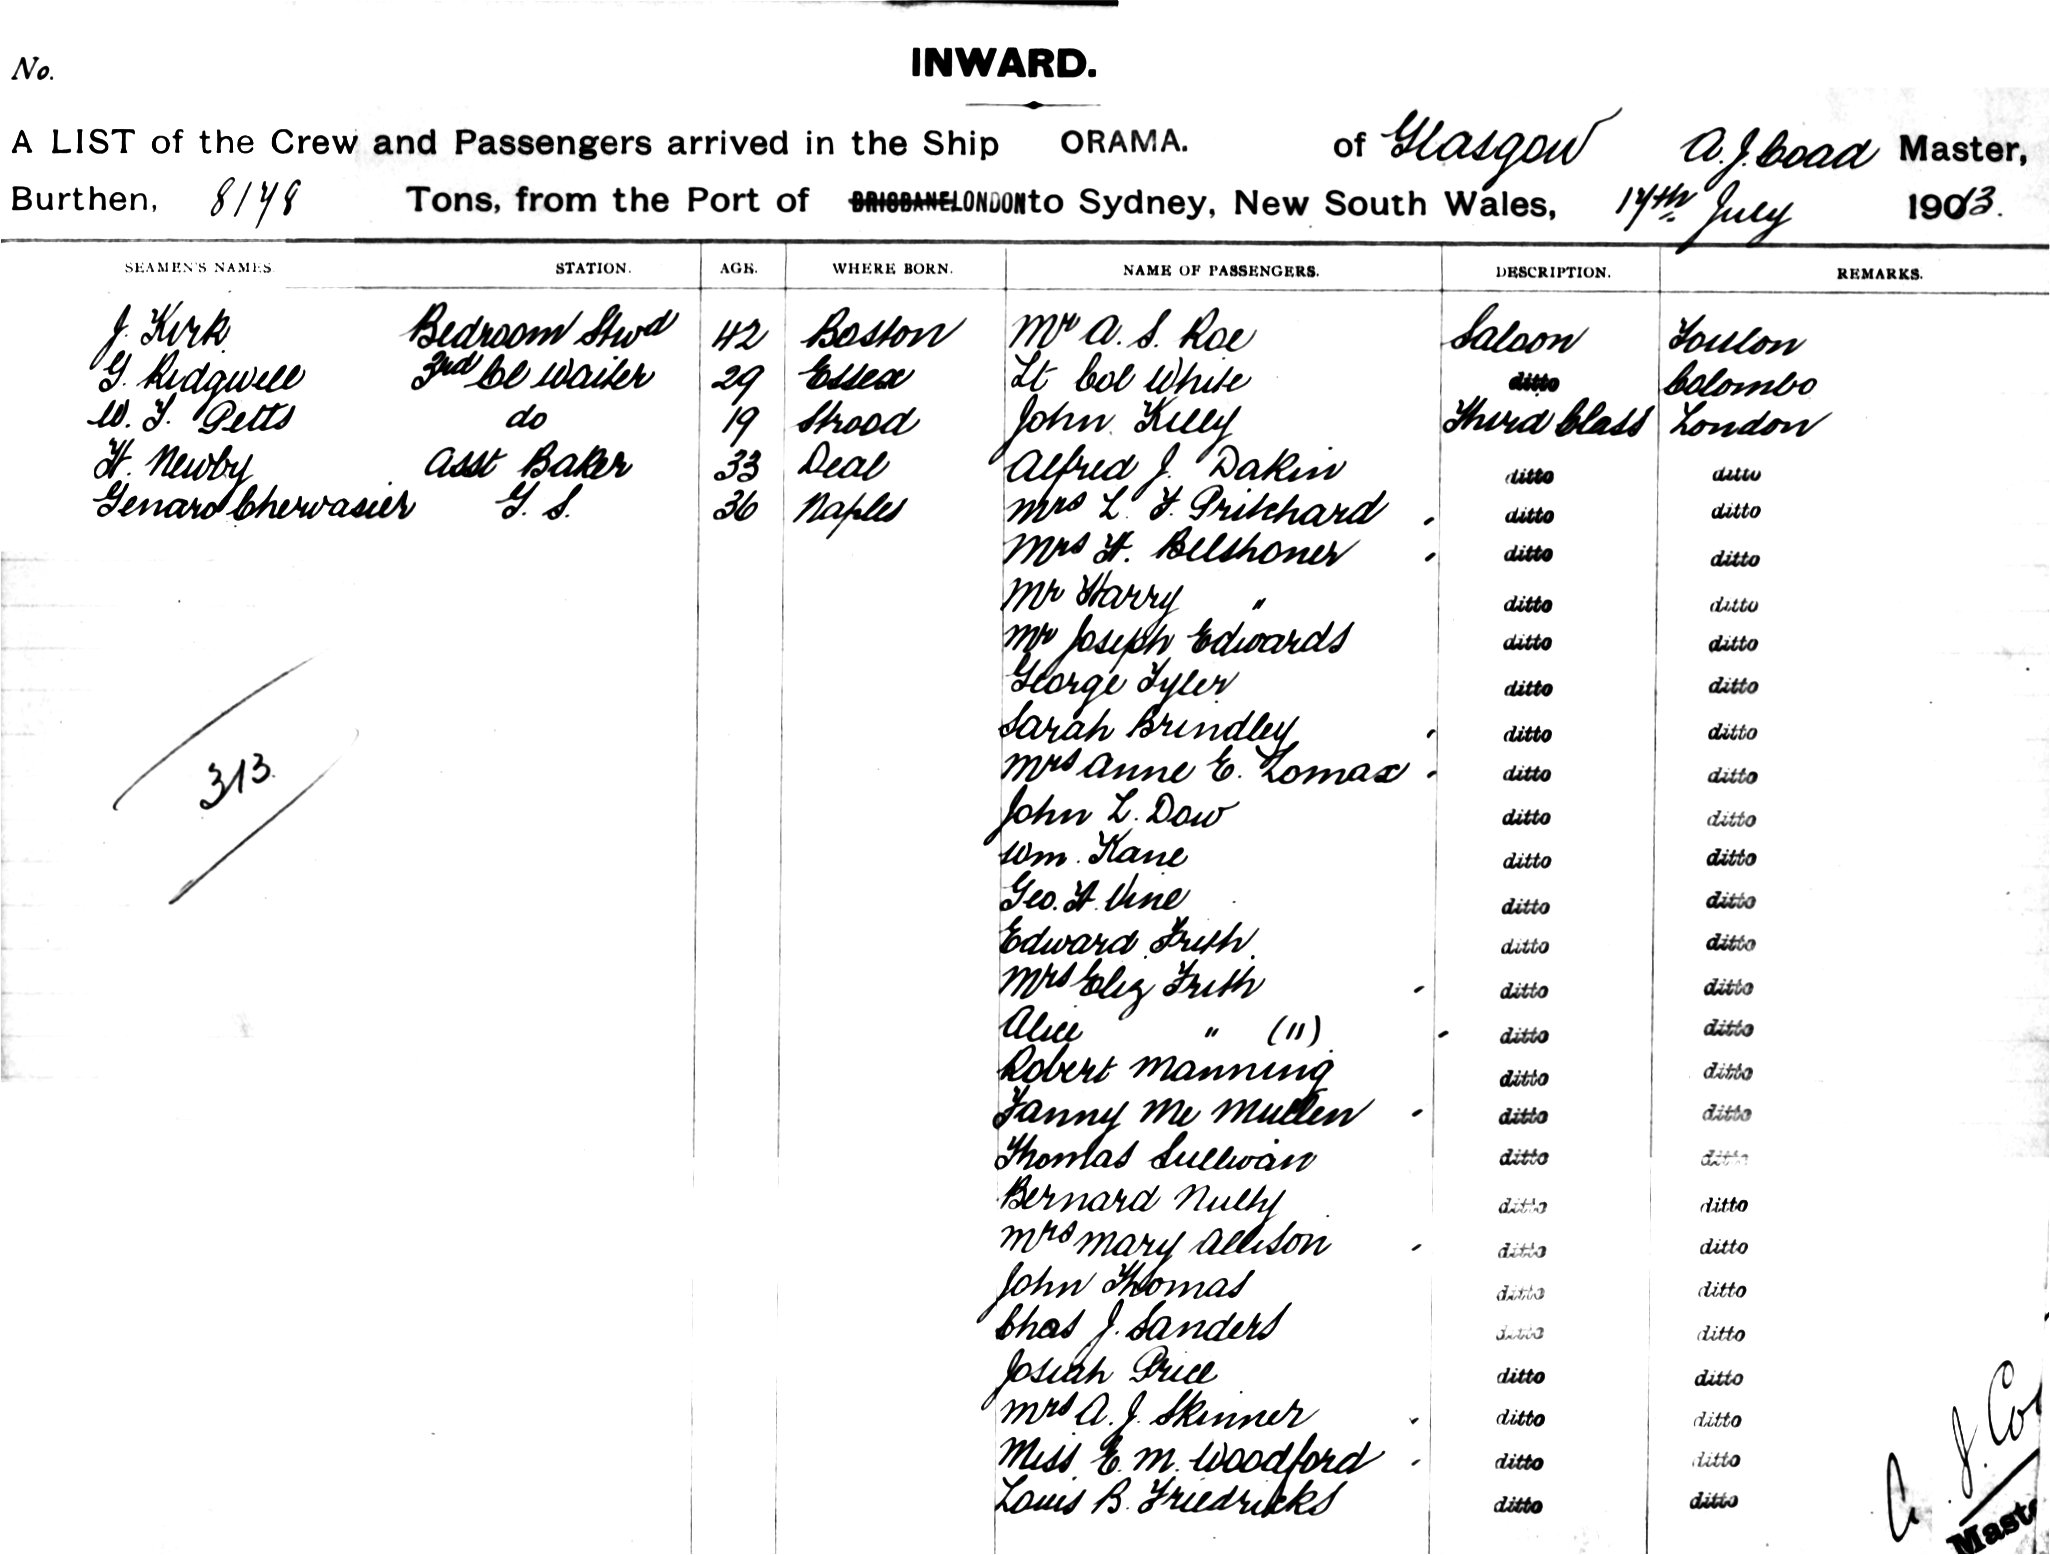 No.
INWARD.
A LIST of the Crew and Passengers arrived in the Ship ORAMA. of Glasgow A. J. Coad Master,
Burthen, 8178 Tons, from the Port of BRISBANE LONDON to Sydney, New South Wales, 17th July 1913.
SEAMEN'S NAMES. STATION. AGE. WHERE BORN. NAME OF PASSENGERS. DESCRIPTION. REMARKS.
J. Kirk Bedroom Stwd 42 Boston Mr A. S. Roe Saloon Toulon
G. Ridgwell 3rd Cl Waiter 29 Essex Lt Col White ditto Colombo
W. T. Petts do 19 Strood John Killy Third Class London
H. Newby Asst Baker 33 Deal Alfred J. Dakin ditto ditto
Genaro Chervasier G. S. 36 Naples Mrs L. F. Pritchard ditto ditto
Mrs H. Belshoner ditto ditto
Mr Harry " ditto ditto
Mr Joseph Edwards ditto ditto
George Tyler ditto ditto
Sarah Brindley ditto ditto
Mrs Anne E. Lomax ditto ditto
313.
John L. Dow ditto ditto
Wm. Kane ditto ditto
Geo. H. Vine ditto ditto
Edward Frith ditto ditto
Mrs Eliz Frith ditto ditto
Alice " (11) ditto ditto
Robert Manning ditto ditto
Fanny Mc Mullen ditto ditto
Thomas Sullivan ditto ditto
Bernard Nulty ditto ditto
Mrs Mary Allison ditto ditto
John Thomas ditto ditto
Chas J. Sanders ditto ditto
Josiah Price ditto ditto
Mrs A. J. Skinner ditto ditto
Miss E. M. Woodford ditto ditto
Louis B. Friedricks ditto ditto
A. J. Co
Maste